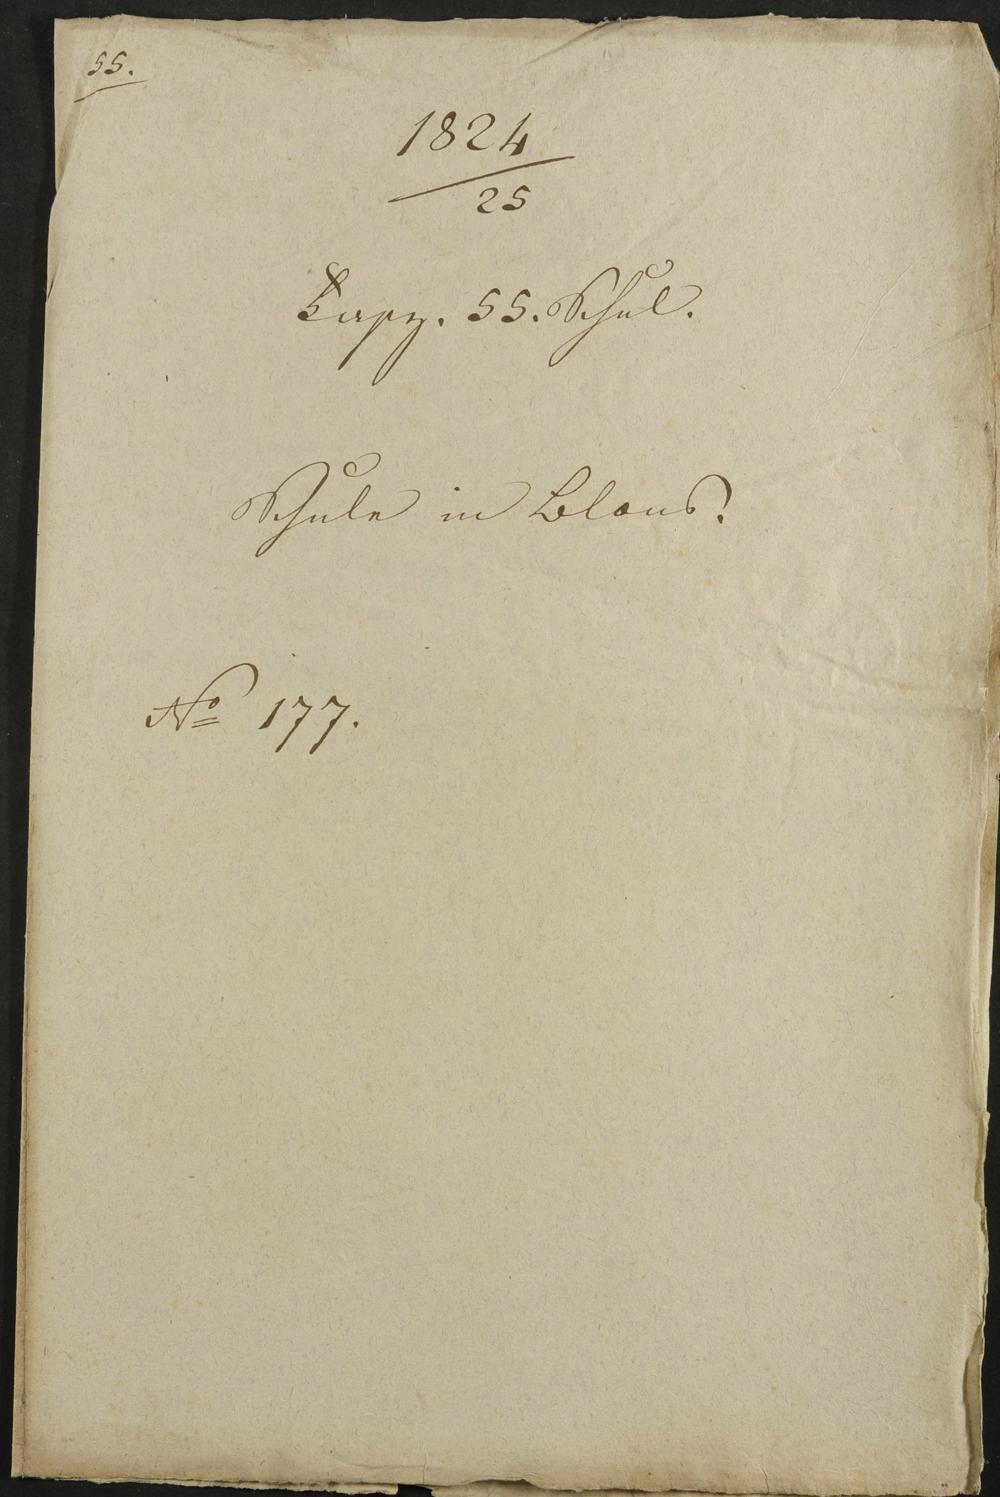 55.
1824
25
Fasz. 55. Schul.
Schule in Blons.
No 177.